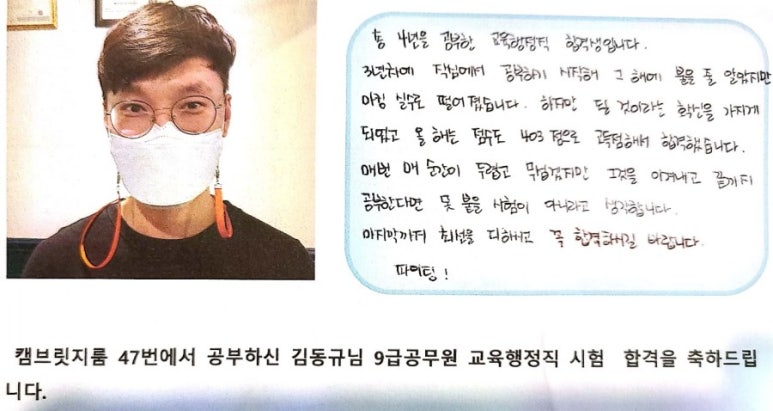 총 4년을 공부한 교육행정직 합격생입니다.
3년차에 직십에서 공부하기 시작해 그 해에 붙을 줄 알았지만
마킹 실수로 떨어졌습니다. 하지만 될 것이라는 확신을 가지게
되었고 올 해는 점수도 403점으로 고득점해서 합격했습니다.
매번 매 순간이 두렵고 무섭겠지만 그것을 이겨내고 끝까지
공부한다면 못 붙을 시험이 아니라고 생각합니다.
마지막까지 최선을 다해서 꼭 합격하시길 바랍니다.
파이팅!
캠브릿지룸 47번에서 공부하신 김동규님 9급공무원 교육행정직 시험 합격을 축하드립
니다.